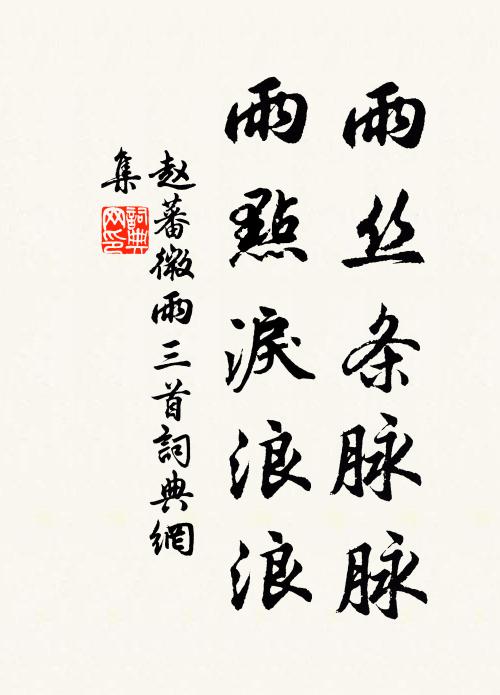 雨丝条脉脉
雨點淚浪浪
赵蕃微雨三首詞典網
集
詞典
网印